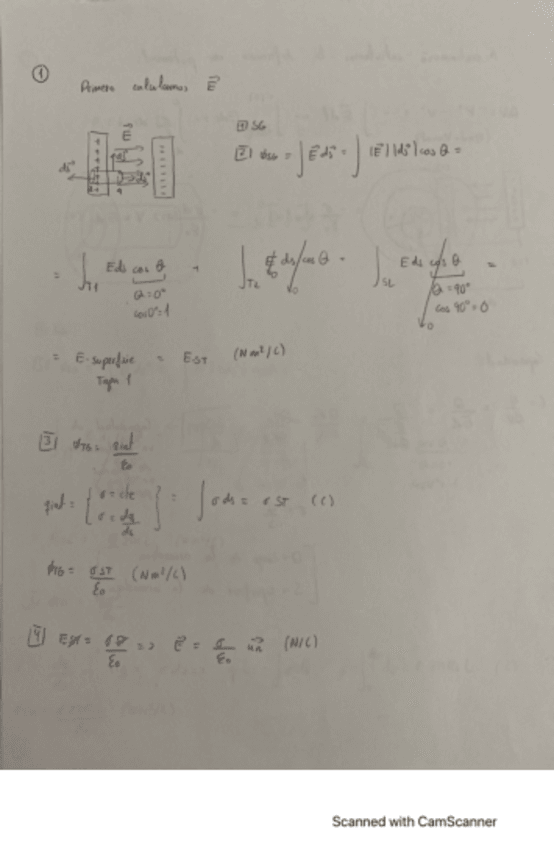 ①
Primero calculamos E⃗
+ + + + E⃗ ds⃗ - - - -
[1] SG
[2] ϕSG = ∫ E⃗ ds⃗ = ∫ |E⃗| |ds⃗| cos θ =
= ∫T1 E ds cos θ + ∫T2 E ds cos θ + ∫SL E ds cos θ =
θ=0° 0 θ=90°
cos 0°=1 cos 90°=0
0
= E·superficie = E·ST (Nm²/C)
Tapa 1
[3] ϕTG = qint/ε0
qint = { σ=cte σ=dq/ds } = ∫ σ ds = σ ST (C)
ϕTG = σ ST/ε0 (Nm²/C)
[4] E ST = σ ST/ε0 => E⃗ = σ/ε0 un⃗ (N/C)
Scanned with CamScanner